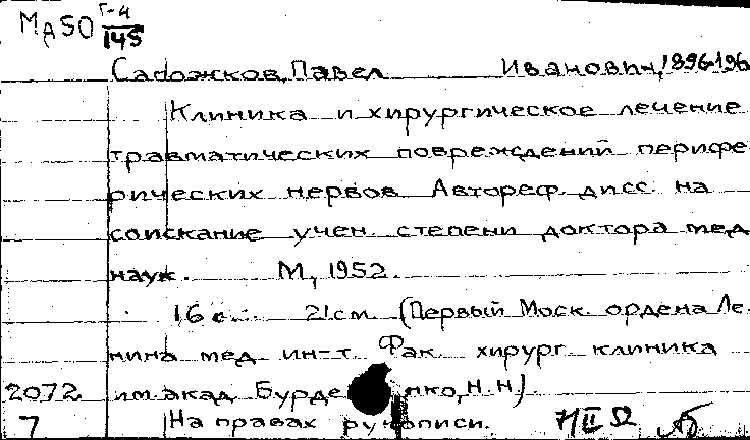 МА50 Г-4
145
Сапожков, Павел Иванович, 1896-196
Клиника и хирургическое лечение
травматических повреждений перифе
рических нервов. Автореф. дисс. на
соискание учен. степени доктора мед
наук. М, 1952.
16 с. 21 см. (Первый Моск. ордена Ле
нина мед. ин-т. Фак. хирург. клиника
2072 им. акад. Бурденко, Н.Н)
7 На правах рукописи. 7/II 52